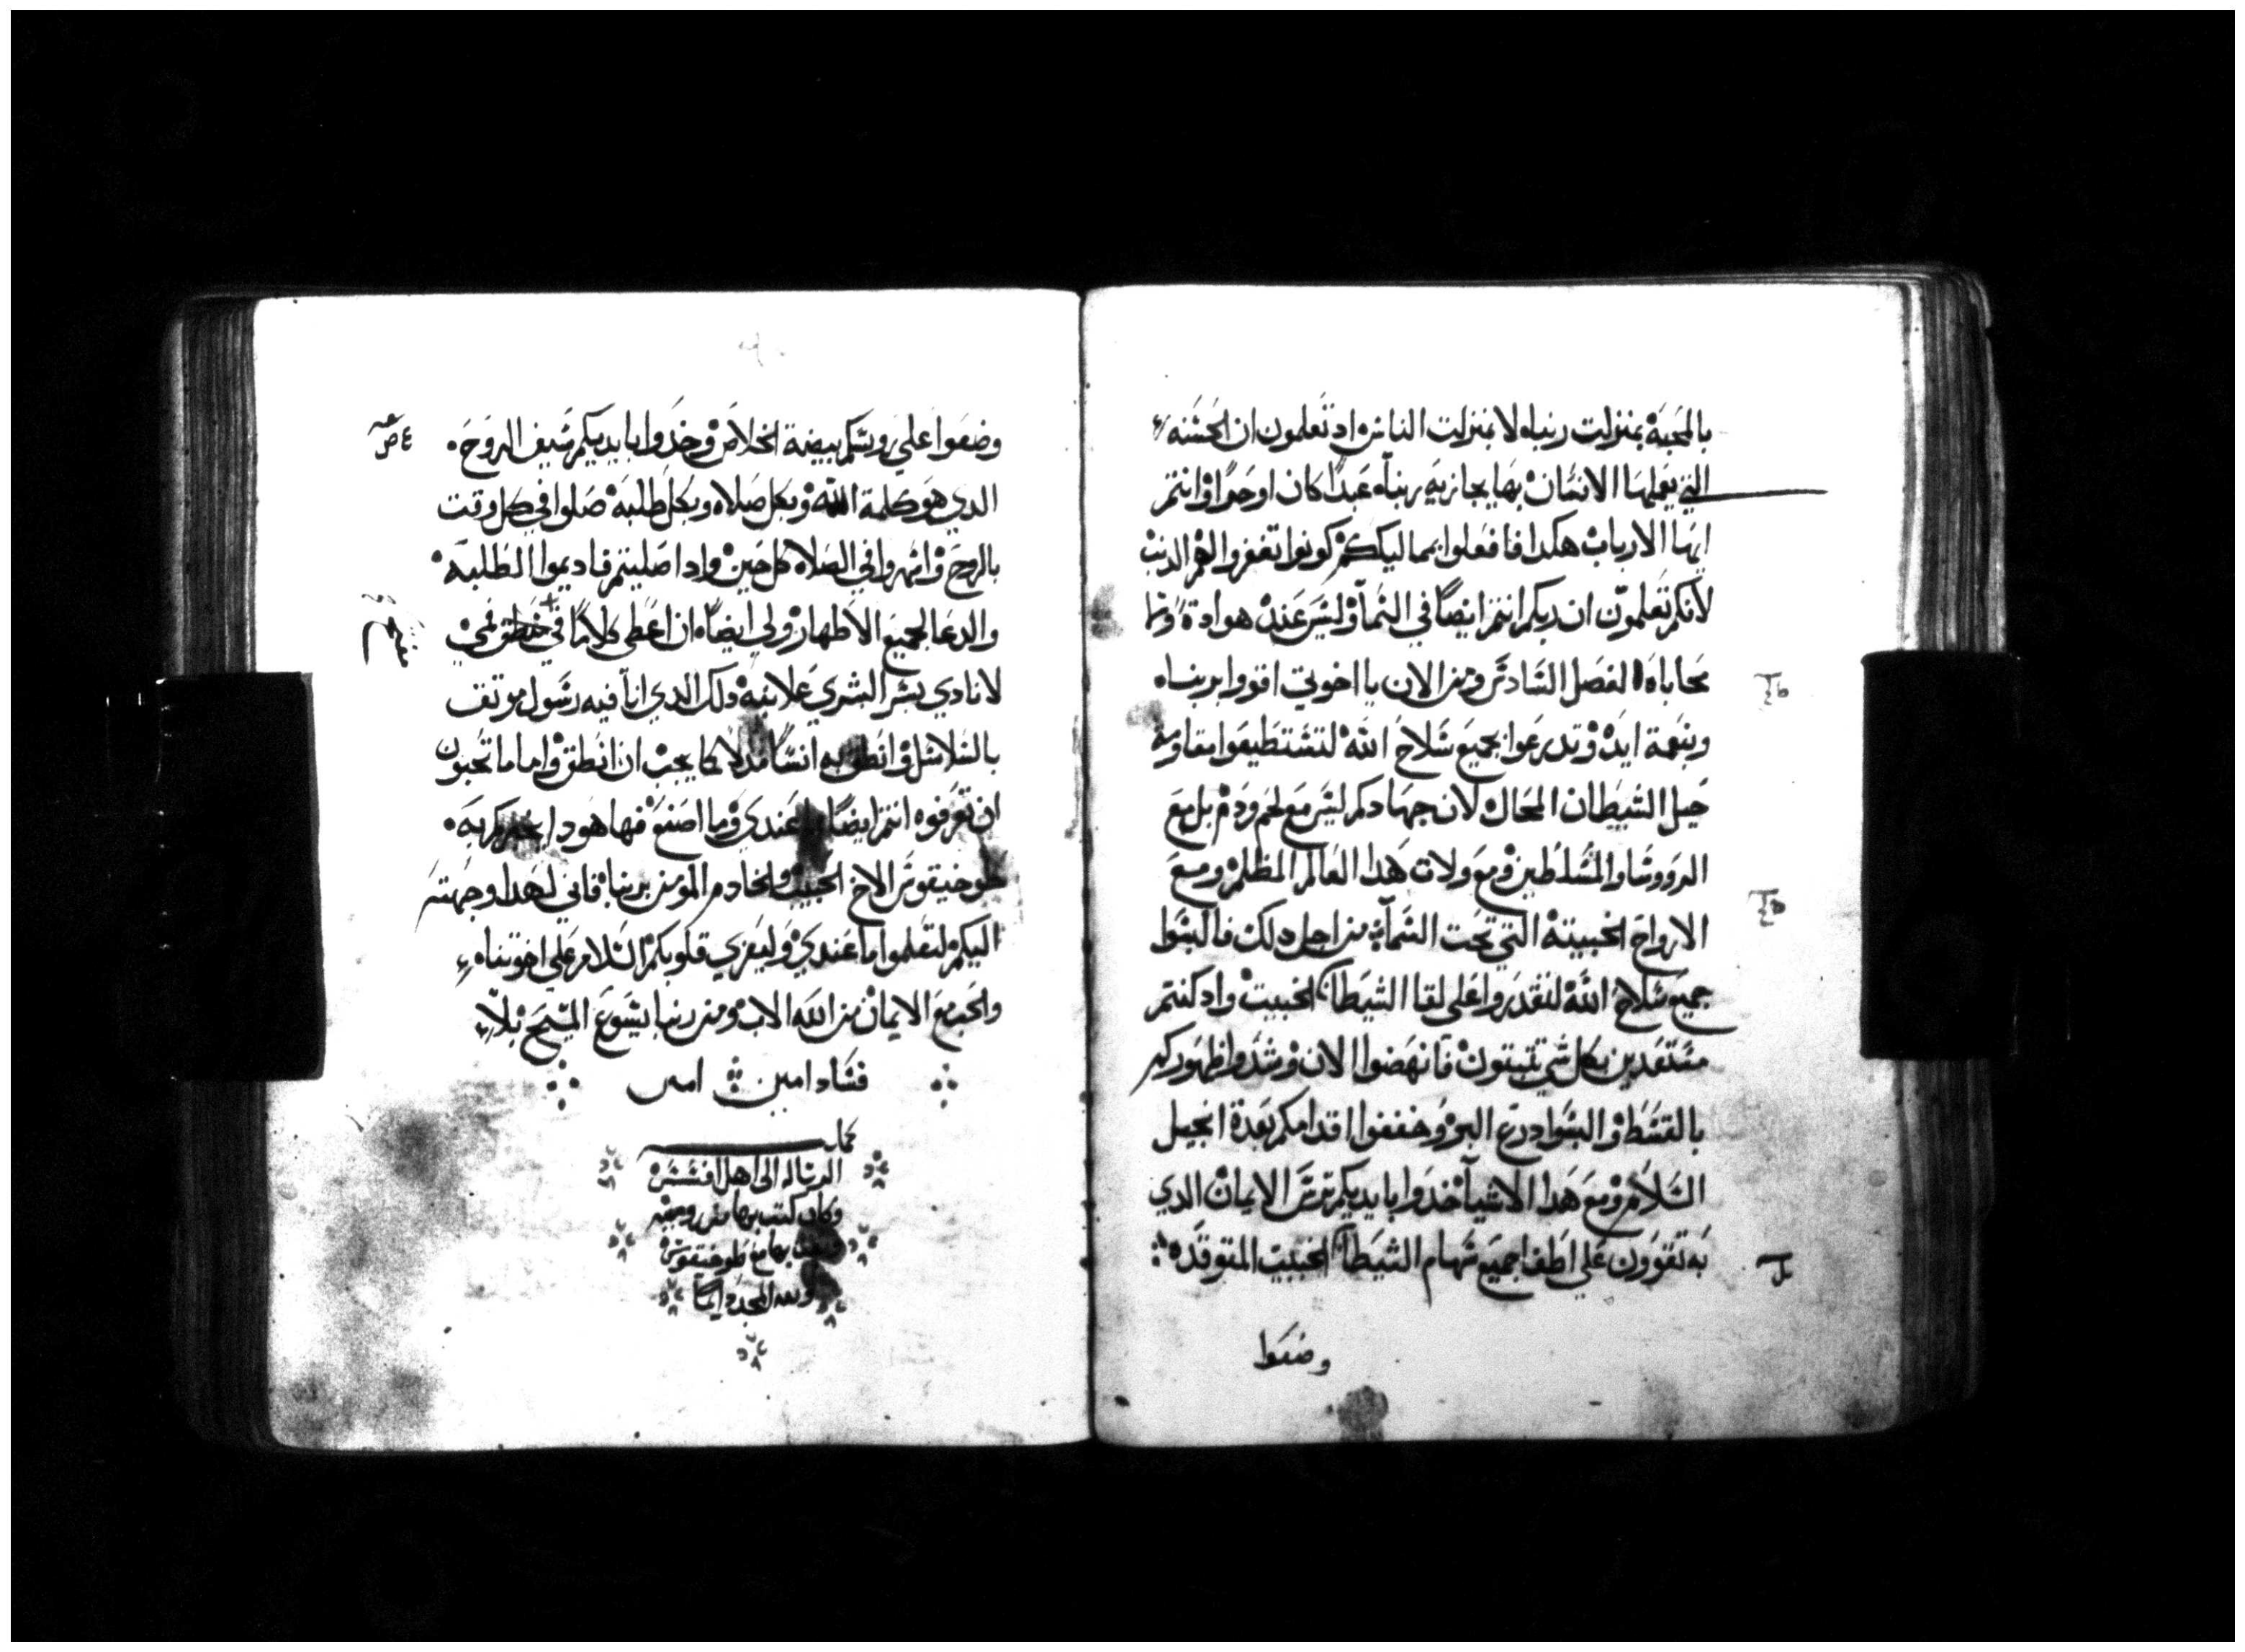 بالمحبة بمنزلت ربناه لا بمنزلت الناس اد تعلمون ان الحسنه
التي يعملها الانسان بها يجازيه ربناه عبدا كان او حرا وانتم
ايها الارباب هكدا فافعلوا بمماليككم كونوا تغفروا لهم الدنب
لانكم تعلمون ان ربكم انتم ايضا في السما وليس عنده هوادة ولا
محاباه الفصل السادس ومن الان يا اخوتي اقووا بربناه
وبنعمة ايده وتدرعوا بجميع سلاح الله لتستطيعوا مقاومة
حيل الشيطان المحال لان جهادكم ليس مع لحم ودم بل مع
الرووسا والمسلطين ومع ولات هدا العالم المظلم ومع
الارواح الخبيته التي تحت السما من اجل دلك فالبسوا
جميع سلاح الله لتقدروا على لقا الشيطان الخبيت واد كنتم
مستعدين بكل شي تتبتون فانهضوا الان وشدوا ظهوركم
بالقسط والبسوا درع البر وخففوا اقدامكم بعدة انجيل
السلام ومع هدا الاشيا خدوا بايديكم ترس الايمان الدي
به تقوون علي اطفا جميع سهام الشيطان الخبيت المتوقده
وضعوا
وضعوا علي روسكم بيضة الخلاص وخدوا بايديكم سيف الروح
الدي هو كلمة الله وبكل صلاه وبكل طلبه صلوا في كل وقت
بالروح واسهروا في الصلاه كل حين وادا صليتم فاديموا الطلبه
والدعا لجميع الاطهار ولي ايضاه ان اعطي كلاما في منطق فمي
لانادي بسر البشري علانيه دلك الدي انا فيه رسول موتق
بالسلاسل وانطق به كما يجب ان انطق واما ما تحبون
ان تعرفوه انتم ايضا عندي وما اصنع فها هودا يخبركم به
طوخيقوس الاخ الحبيب والخادم المومن بربنا فاني لهدا وجهته
اليكم لتعلموا ما عندي وليعزي قلوبكم السلام على اخوتناه
والحب مع الايمان من الله الاب ومن ربنا يسوع المسيح بلا
فساد امين امين
كملت
الرساله الى اهل افسس
وكان كتب بها من روميه
بها مع طوخيقوس
المجد دايما